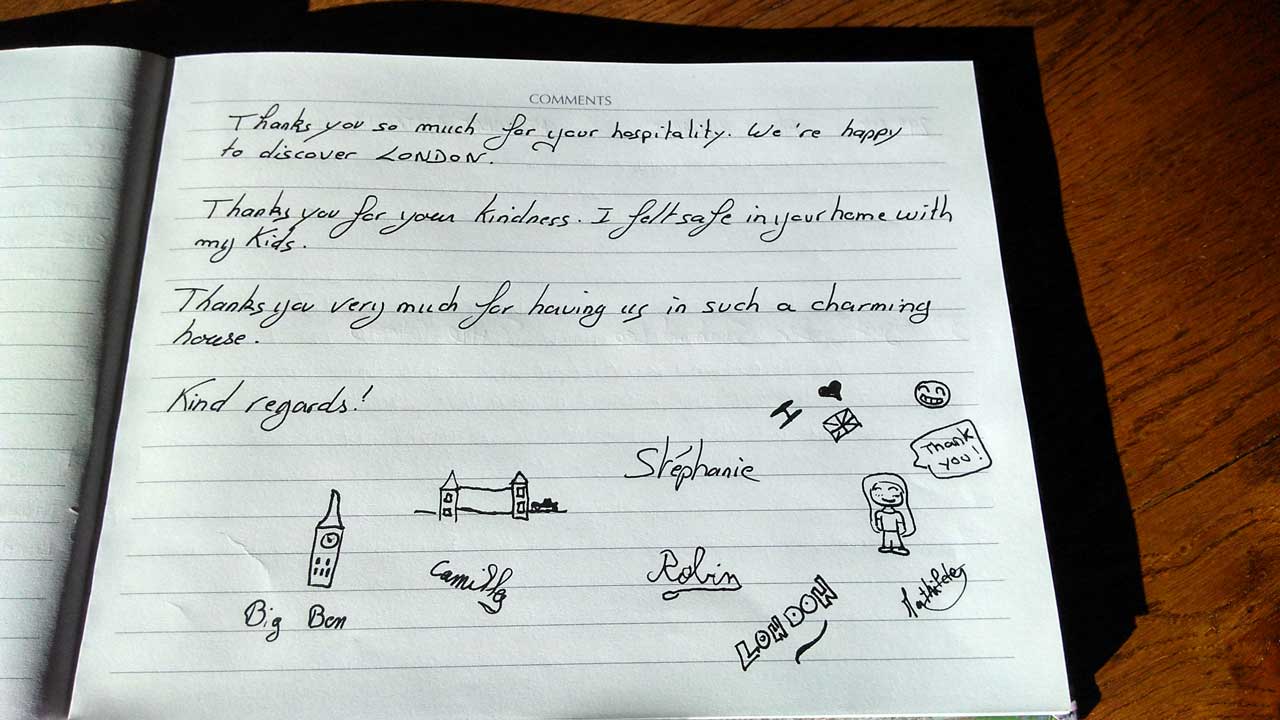 COMMENTS
Thanks you so much for your hospitality. We're happy
to discover LONDON.
Thanks you for your kindness. I felt safe in your home with
my kids.
Thanks you very much for having us in such a charming
house.
Kind regards!
I
Thank
you!
Stéphanie
Camille
Robin
Big Ben
LONDON